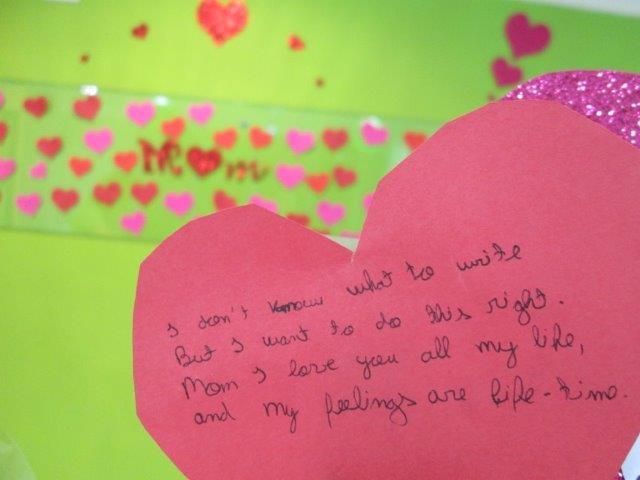 Mom
I don't know what to write
But I want to do this right.
Mom I love you all my life,
and my feelings are life-time.